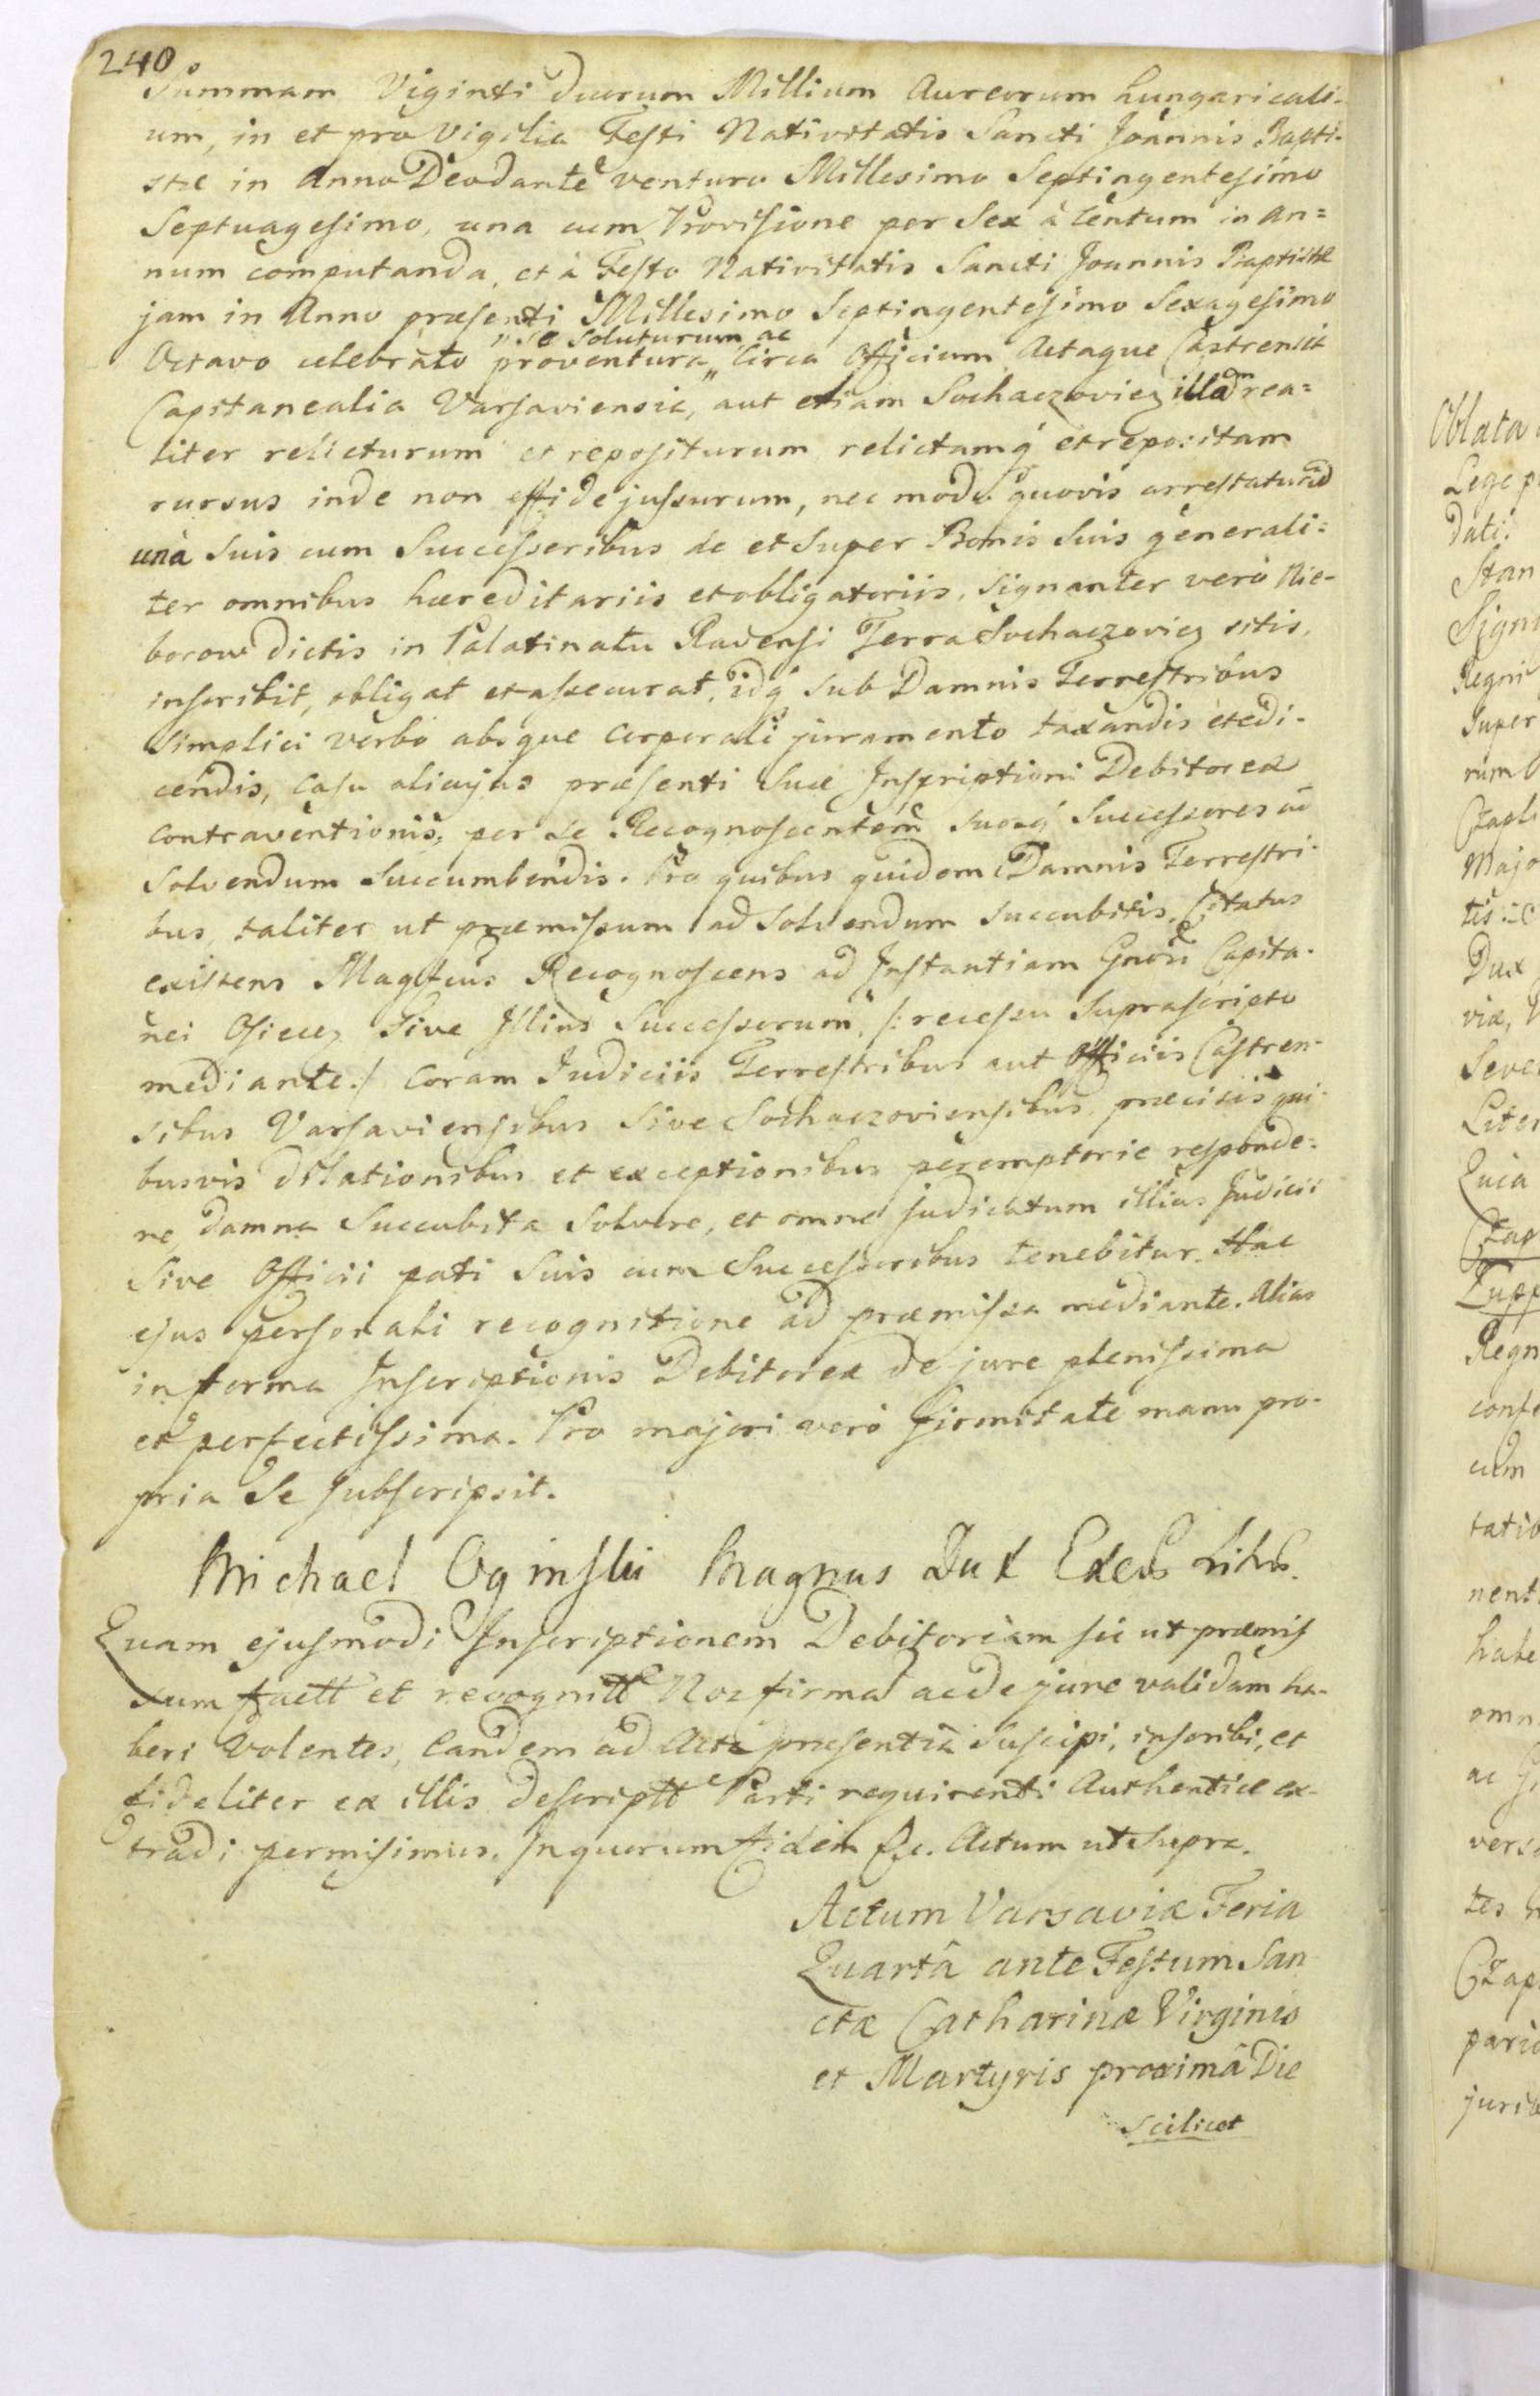 240
Summam Viginti duorum Millium Aureorum hungaricali-
um, in et pro Vigilia Festi Nativitatis Sancti Joannis Bapti-
stæ in Anno Deo dante venturo Millesimo Septingentesimo
Septuagesimo, una cum Provisione per Sex à Centum in an=
num computanda, et à Festo Nativitatis Sancti Joannis Baptistæ
jam in Anno præsenti Millesimo Septingentesimo Sexagesimo
„se soluturum ac
Octavo celebrato proventura „ Circa Officium Actaque Castrensia
Capitanealia Varsaviensia, aut etiam Sochaczoviez illam rea=
liter relicturum et repositurum relictamq́ et repositam
rursus inde non effidejussurum, nec modo quovis arrestaturum
unà Suis cum Successoribus de et Super Bonis Suis generali=
ter omnibus hæreditariis et obligatoriis, signanter verò Nie-
borow dictis in Palatinatu Ravensi Terra Sochaczoviez sitis,
inscribit, obligat et assecurat, idq́ Sub Damnis Terrestribus
Simplici verbo absque corporali juramento taxandis et edi-
cendis, Casu alicujus præsenti Suæ Inscriptioni Debitoreæ
contraventionis, per se Recognoscentem Suosq́ Successores ad
Solvendum Succumbendis. Pro quibus quidem Damnis Terrestri-
bus, taliter ut præmissum ad Solvendum Succubitis, Citatus
existens Magficus Recognoscens ad Instantiam Gnosi Capita-
nei Osiecz Sive Illius Successorum, /: recessu Suprascripto
mediante :/ Coram Judiciis Terrestribus aut Officiis Castren-
sibus Varsaviensibus Sive Sochaczoviensibus, præcisis qui-
busvis dilationibus et exceptionibus peremptorie responde=
re, damna Succubita Solvere, et omne judicatum illius Judicii
Sive Officii pati Suis cum Successoribus tenebitur. Hac
ejus personali recognitione ad præmissa mediante. Alias
in forma Inscriptionis Debitoreæ de jure plenissima
et perfectissima. Pro majori verò firmitate manu pro-
pria Se Subscripsit.
Michael Oginski Magnus Dux Exers Lithus.
Quam ejusmodi Inscriptionem Debitoriam sic ut præmis
sum factt et recognitt Nos firma ac de jure validam ha-
beri Volentes, Eandem ad Acta præsentia Suscipi, inscribi, et
fideliter ex illis descriptt Parti requirenti Authentice ex-
tradi permisimus. In quorum fidem &c. Actum ut Supra.
Actum Varsaviæ Feria
Quartâ ante Festum San
ctæ Catharinæ Virginis
et Martyris proximâ Die
scilicet
Oblata
Lege
Dati
Stan
Regni
Super
Majo
Dux
viæ,
Seve
Liter
Quia
Regn
cum
tatio
nent
habe
omn
ac
vers
tes
Czap